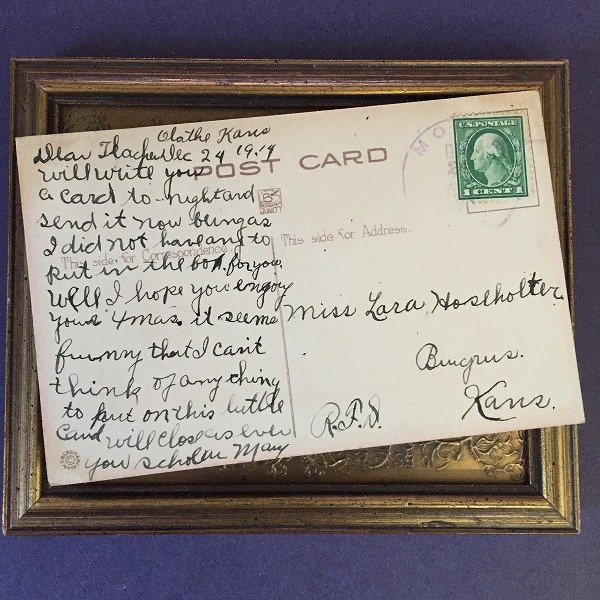 Olathe Kans
Dear Teacher Dec 24 1919
POST CARD
U.S. POSTAGE
1 CENT 1
MO
will write you
a card to-night and
send it now being as
I did not have any to
This side for Correspondence.
This side for Address.
put in the box for you
Well I hope you engoy
your Xmas it seems
funny that I can't
think of any thing
to put on this little
Card will close as ever
you scholar Mary
Miss Lara Hoslholter
Kans.
R.F.D.